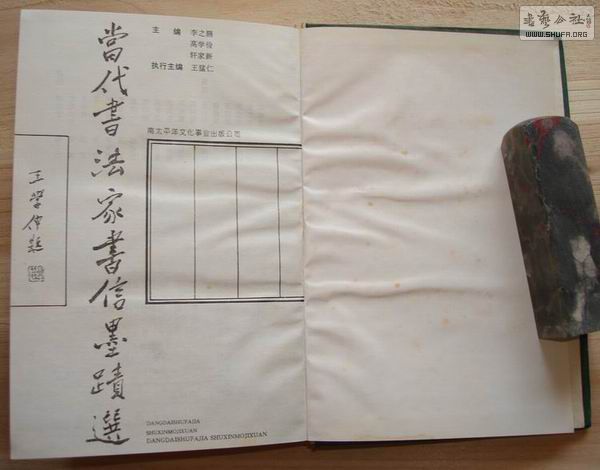 當代書法家書信墨蹟選
王學仲題
主 编 李之明
高学俭
轩家新
执行主编 王猛仁
南太平洋文化事业出版公司
DANGDAISHUFAJIA
SHUXINMOJIXUAN
DANGDAISHUFAJIA SHUXINMOJIXUAN
書藝公社
WWW.SHUFA.ORG